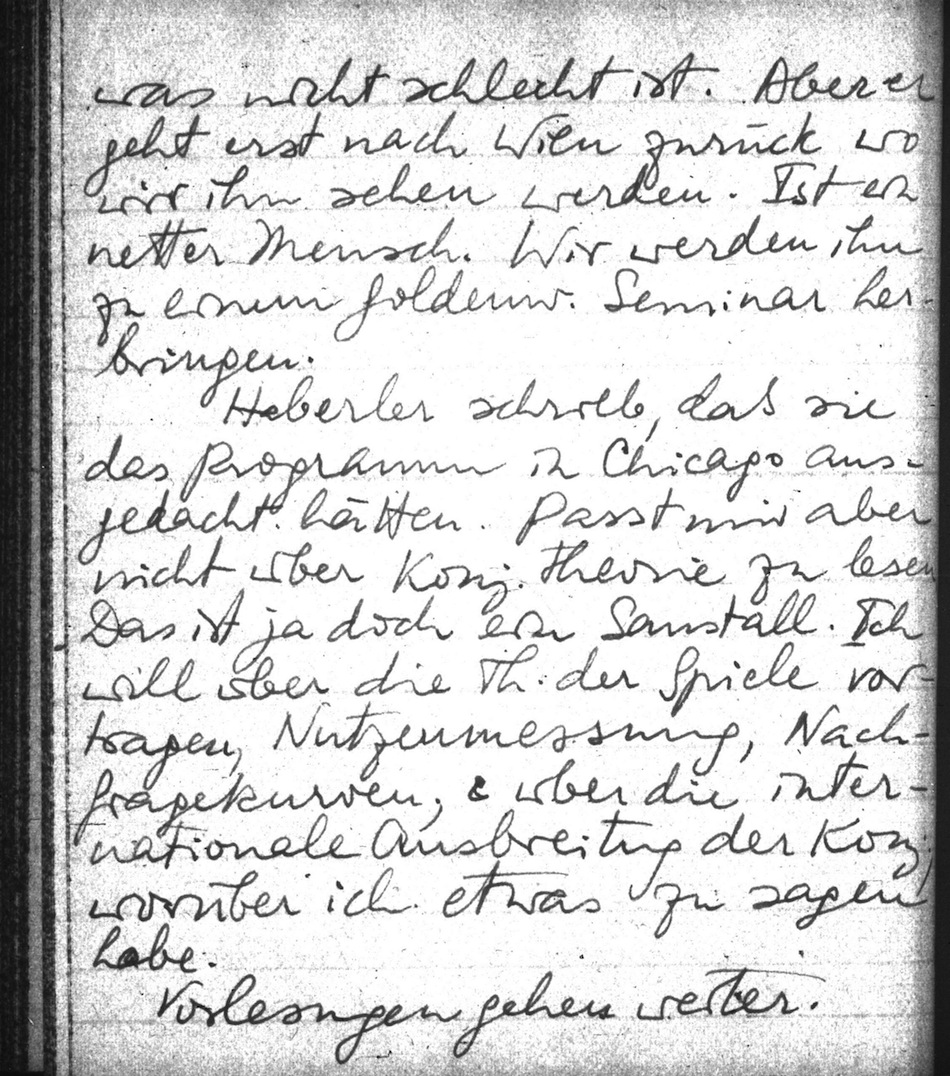 was nicht schlecht ist. Aber er
geht erst nach Wien zurück wo
wir ihn sehen werden. Ist ein
netter Mensch. Wir werden ihn
zu einem Seminar her-
bringen.
Haberler schrieb, daß sie
das Programm in Chicago aus-
gedacht hätten. Passt mir aber
nicht über Konj. Theorie zu lesen
Das ist ja doch ein Saustall. Ich
will über die Th. der Spiele vor-
tragen, Nutzenmessung, Nach-
fragekurven, & über die inter-
nationale Ausbreitung der Konj,
worüber ich etwas zu sagen
habe.
Vorlesungen gehen weiter.